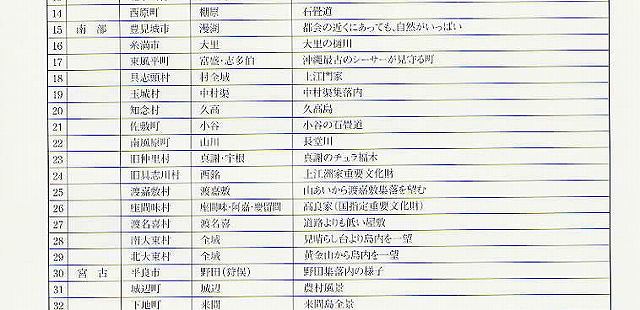 14 西原町 棚原 石畳道
15 南部 豊見城市 漫湖 都会の近くにあっても、自然がいっぱい
16 糸満市 大里 大里の樋川
17 東風平町 富盛・志多伯 沖縄最古のシーサーが見守る町
18 具志頭村 村全域 上江門家
19 玉城村 中村渠 中村渠集落内
20 知念村 久高 久高島
21 佐敷町 小谷 小谷の石畳道
22 南風原町 山川 長堂川
23 旧仲里村 真謝・宇根 真謝のチュラ福木
24 旧具志川村 西銘 上江洲家重要文化財
25 渡嘉敷村 渡嘉敷 山あいから渡嘉敷集落を望む
26 座間味村 座間味・阿嘉・慶留間 高良家（国指定重要文化財）
27 渡名喜村 渡名喜 道路よりも低い屋敷
28 南大東村 全域 見晴らし台より島内を一望
29 北大東村 全域 黄金山から島内を一望
30 宮古 平良市 野田（狩俣） 野田集落内の様子
31 城辺町 城辺 農村風景
32 下地町 来間 来間島全景